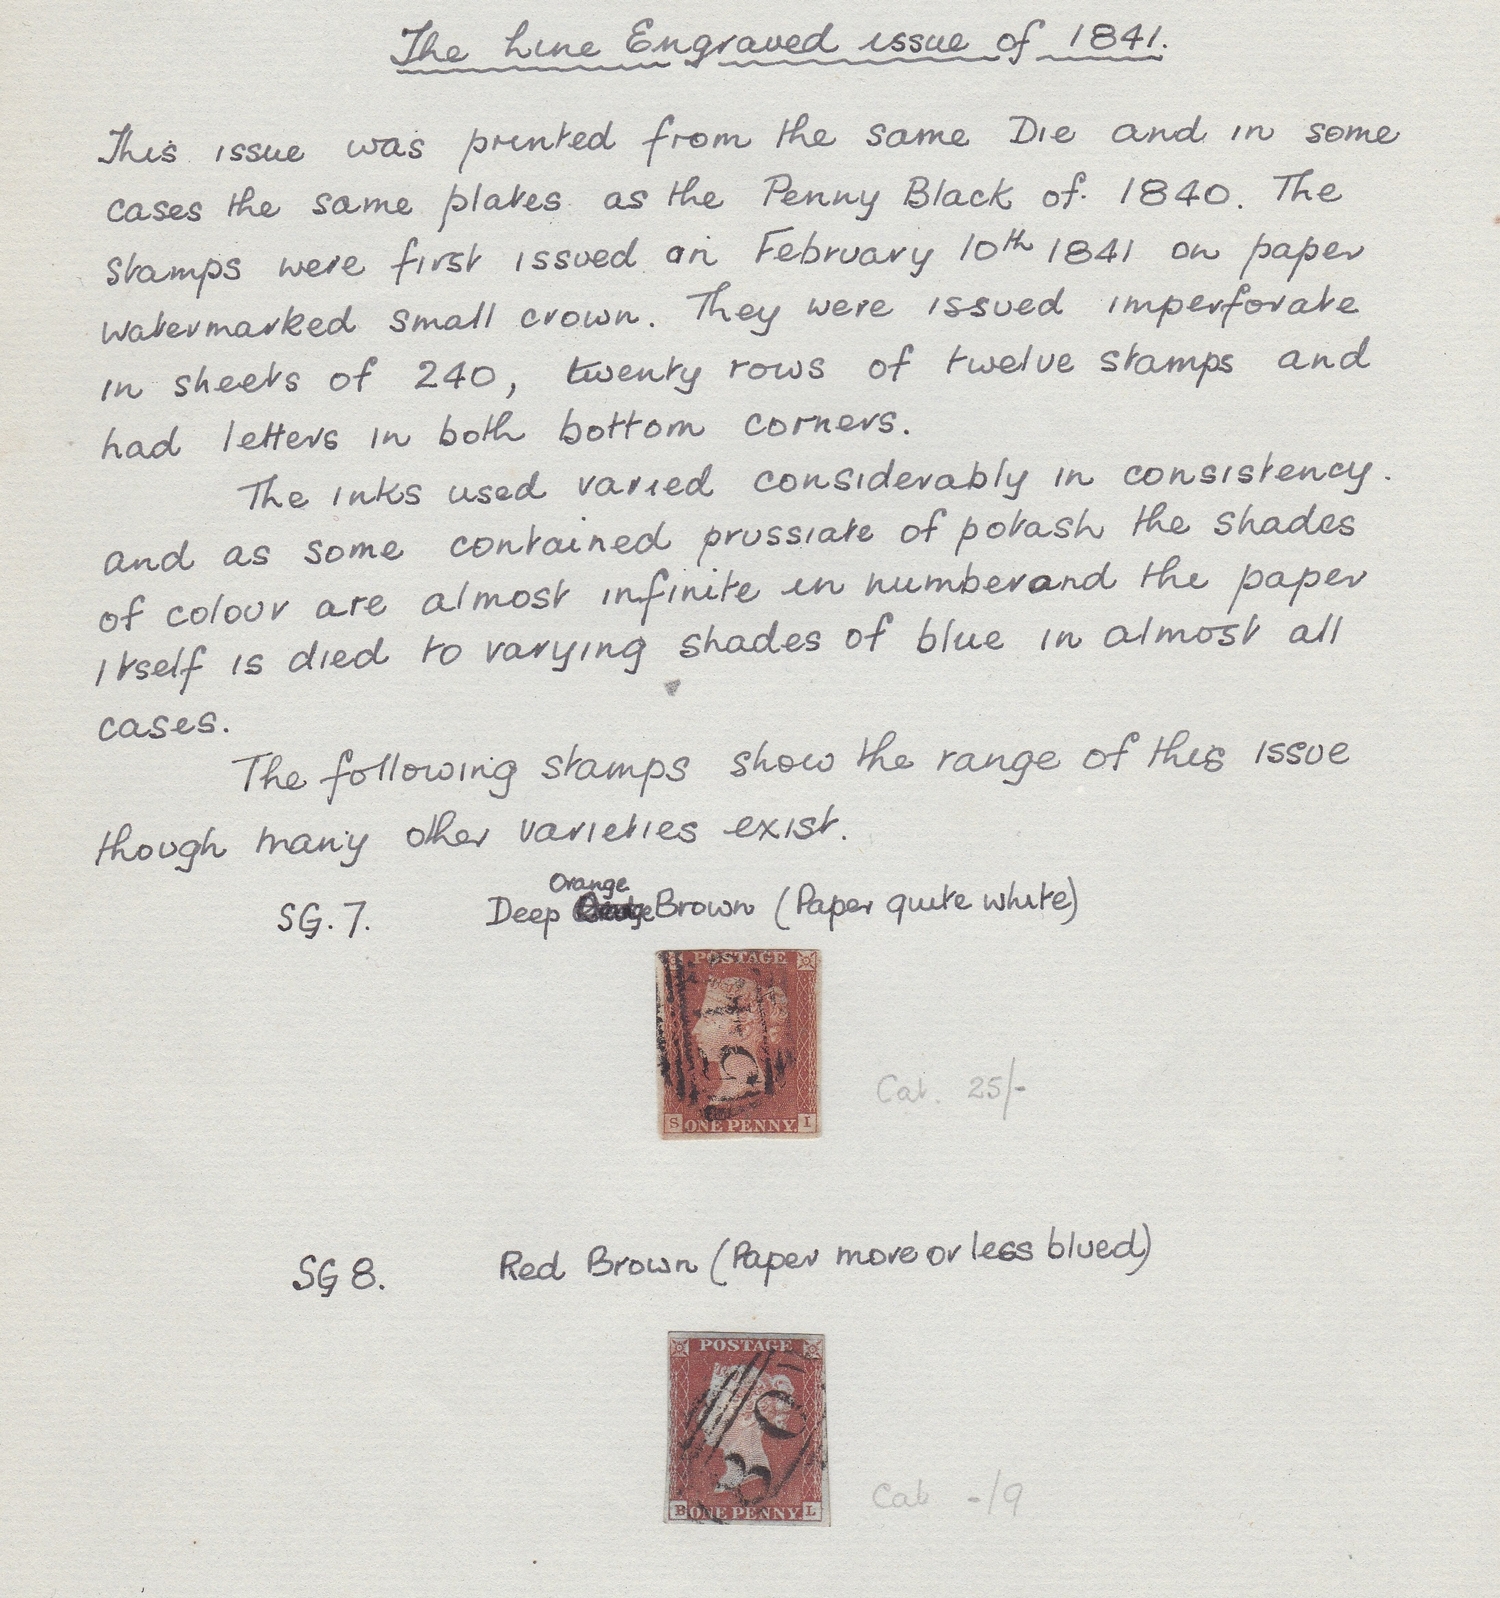 The Line Engraved issue of 1841.
This issue was printed from the same Die and in some
cases the same plates as the Penny Black of 1840. The
stamps were first issued on February 10th 1841 on paper
watermarked small crown. They were issued imperforate
in sheets of 240, twenty rows of twelve stamps and
had letters in both bottom corners.
The inks used varied considerably in consistency.
and as some contained prussiate of potash the shades
of colour are almost infinite in number and the paper
itself is died to varying shades of blue in almost all
cases.
The following stamps show the range of this issue
though many other varieties exist.
Orange
SG.7. Deep Brown (Paper quite white)
POSTAGE
S ONE PENNY. I
Cat. 25/-
SG 8. Red Brown (Paper more or less blued)
POSTAGE
B ONE PENNY. L
Cat -/9